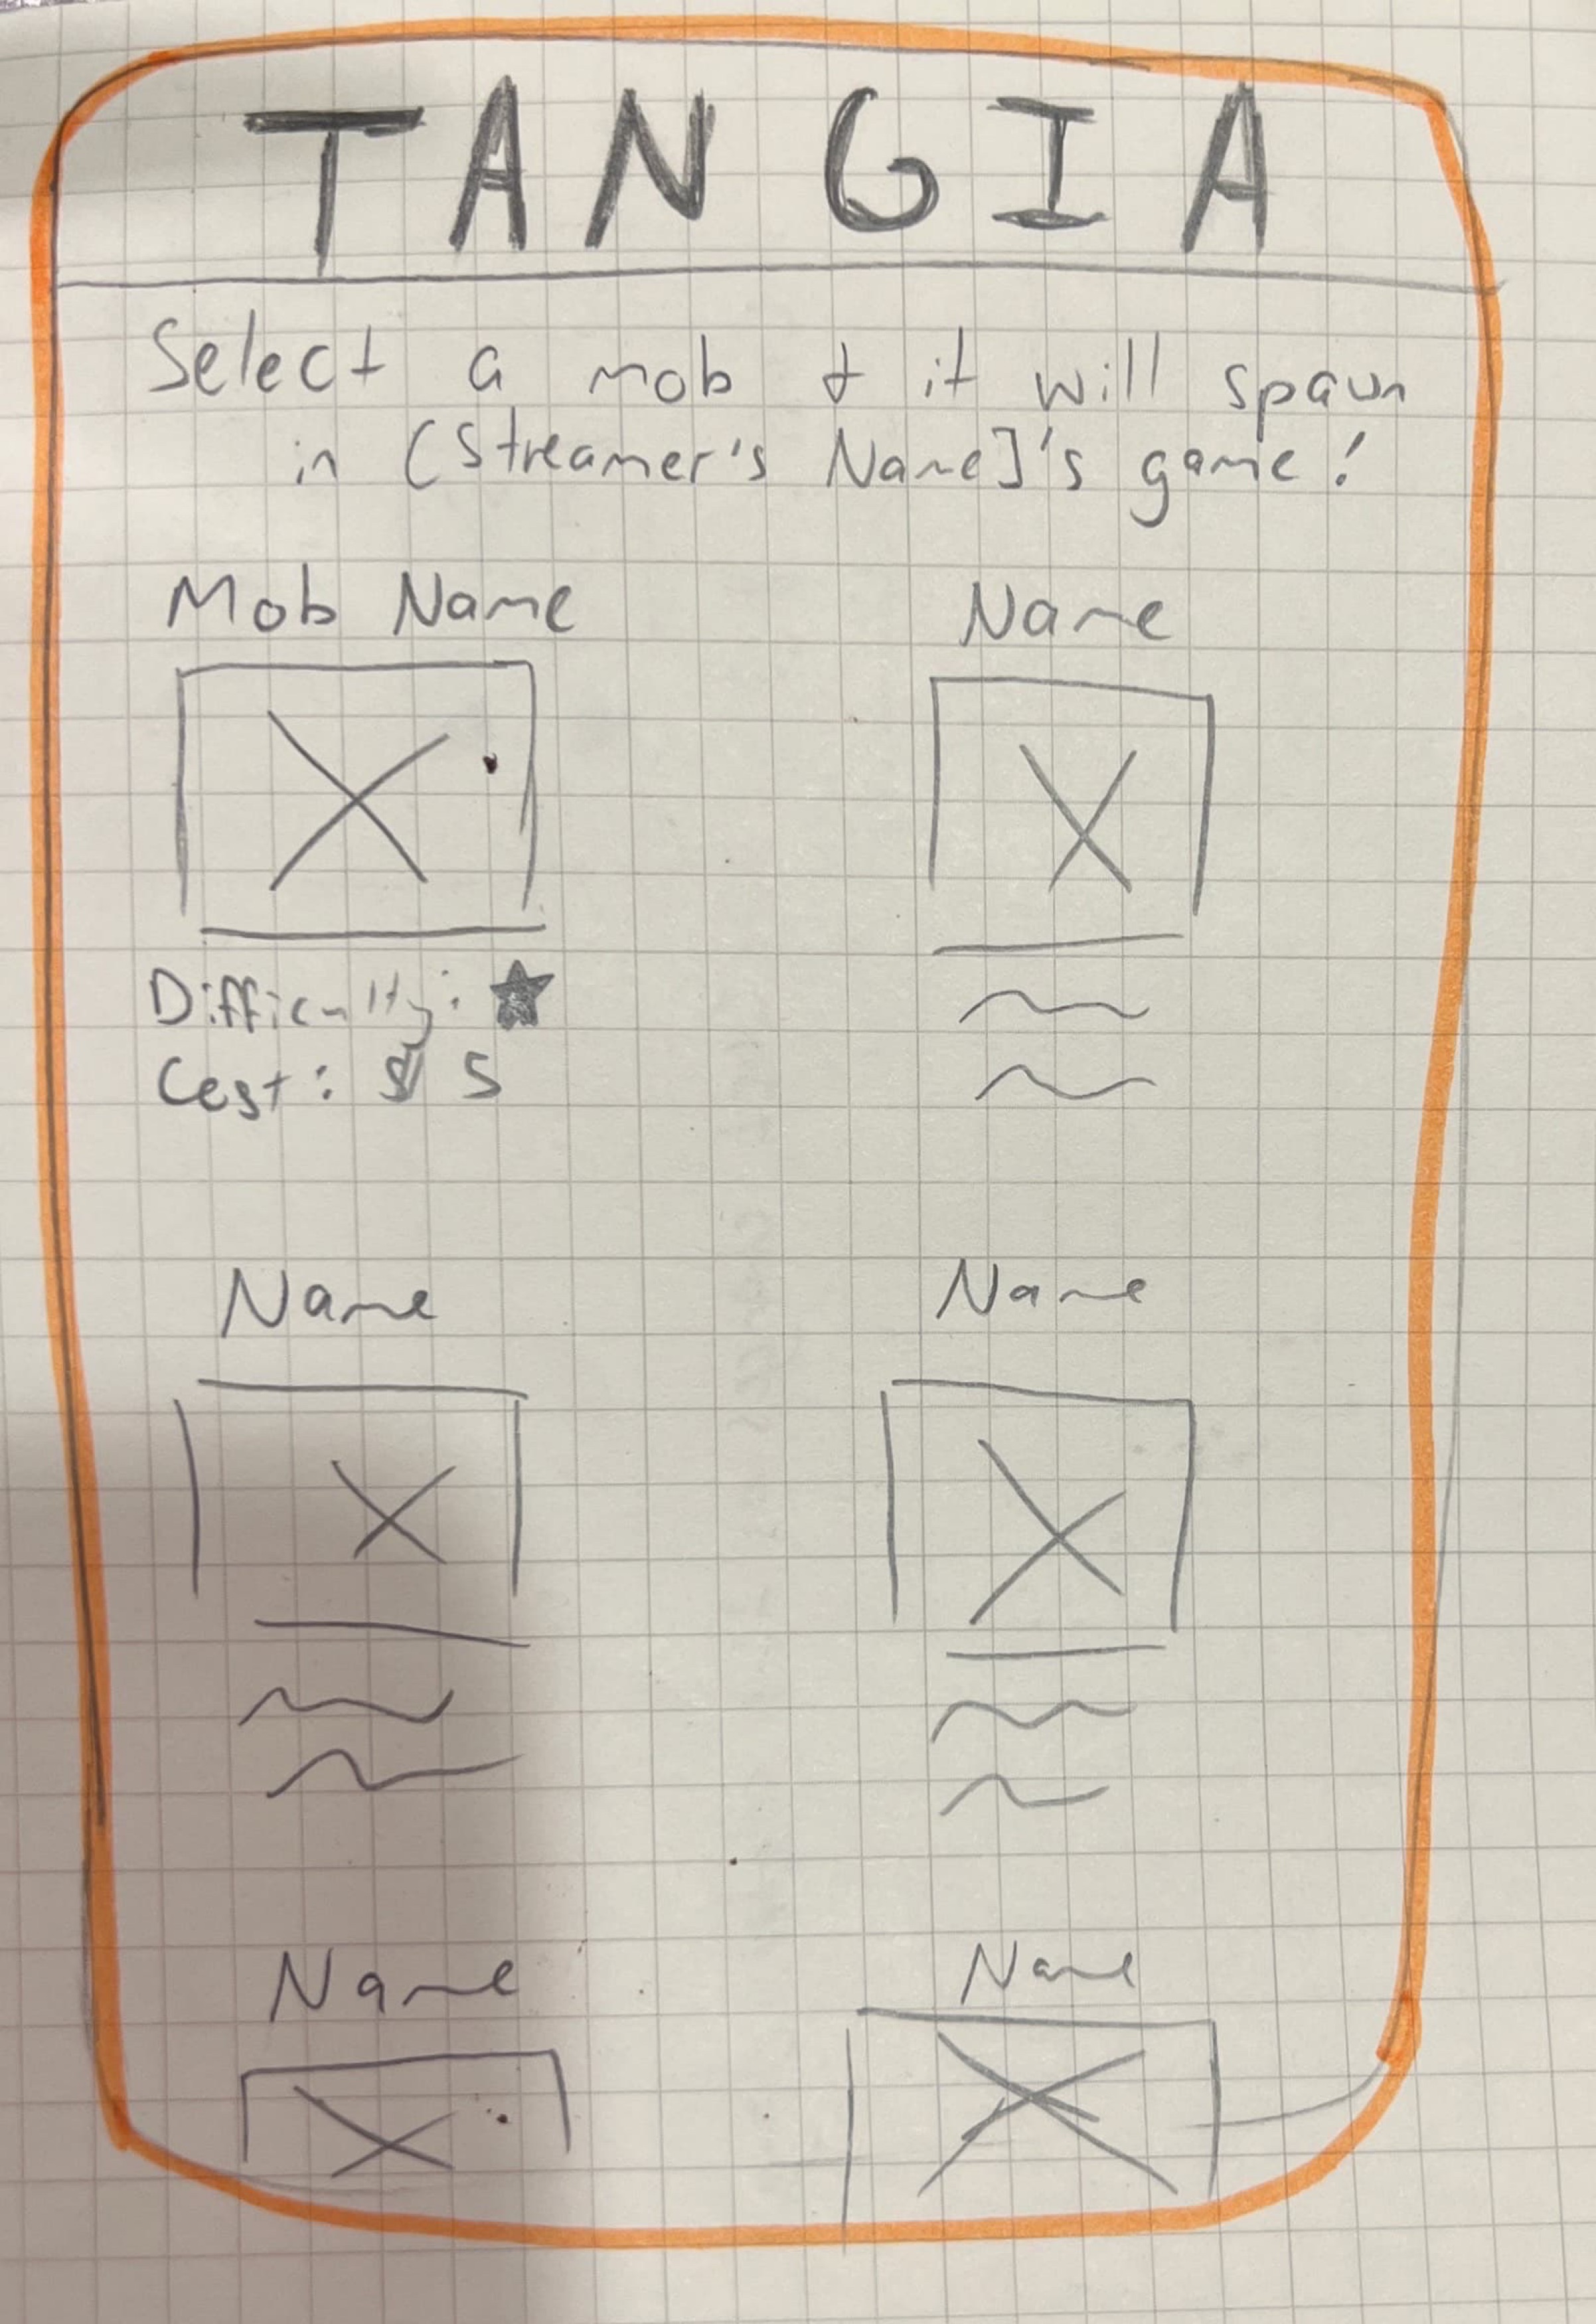 TANGIA
Select a mob & it will spawn
in [Streamer's Name]'s game!
Mob Name
Name
Difficulty: ★
Cost: $ 5
Name
Name
Name
Name